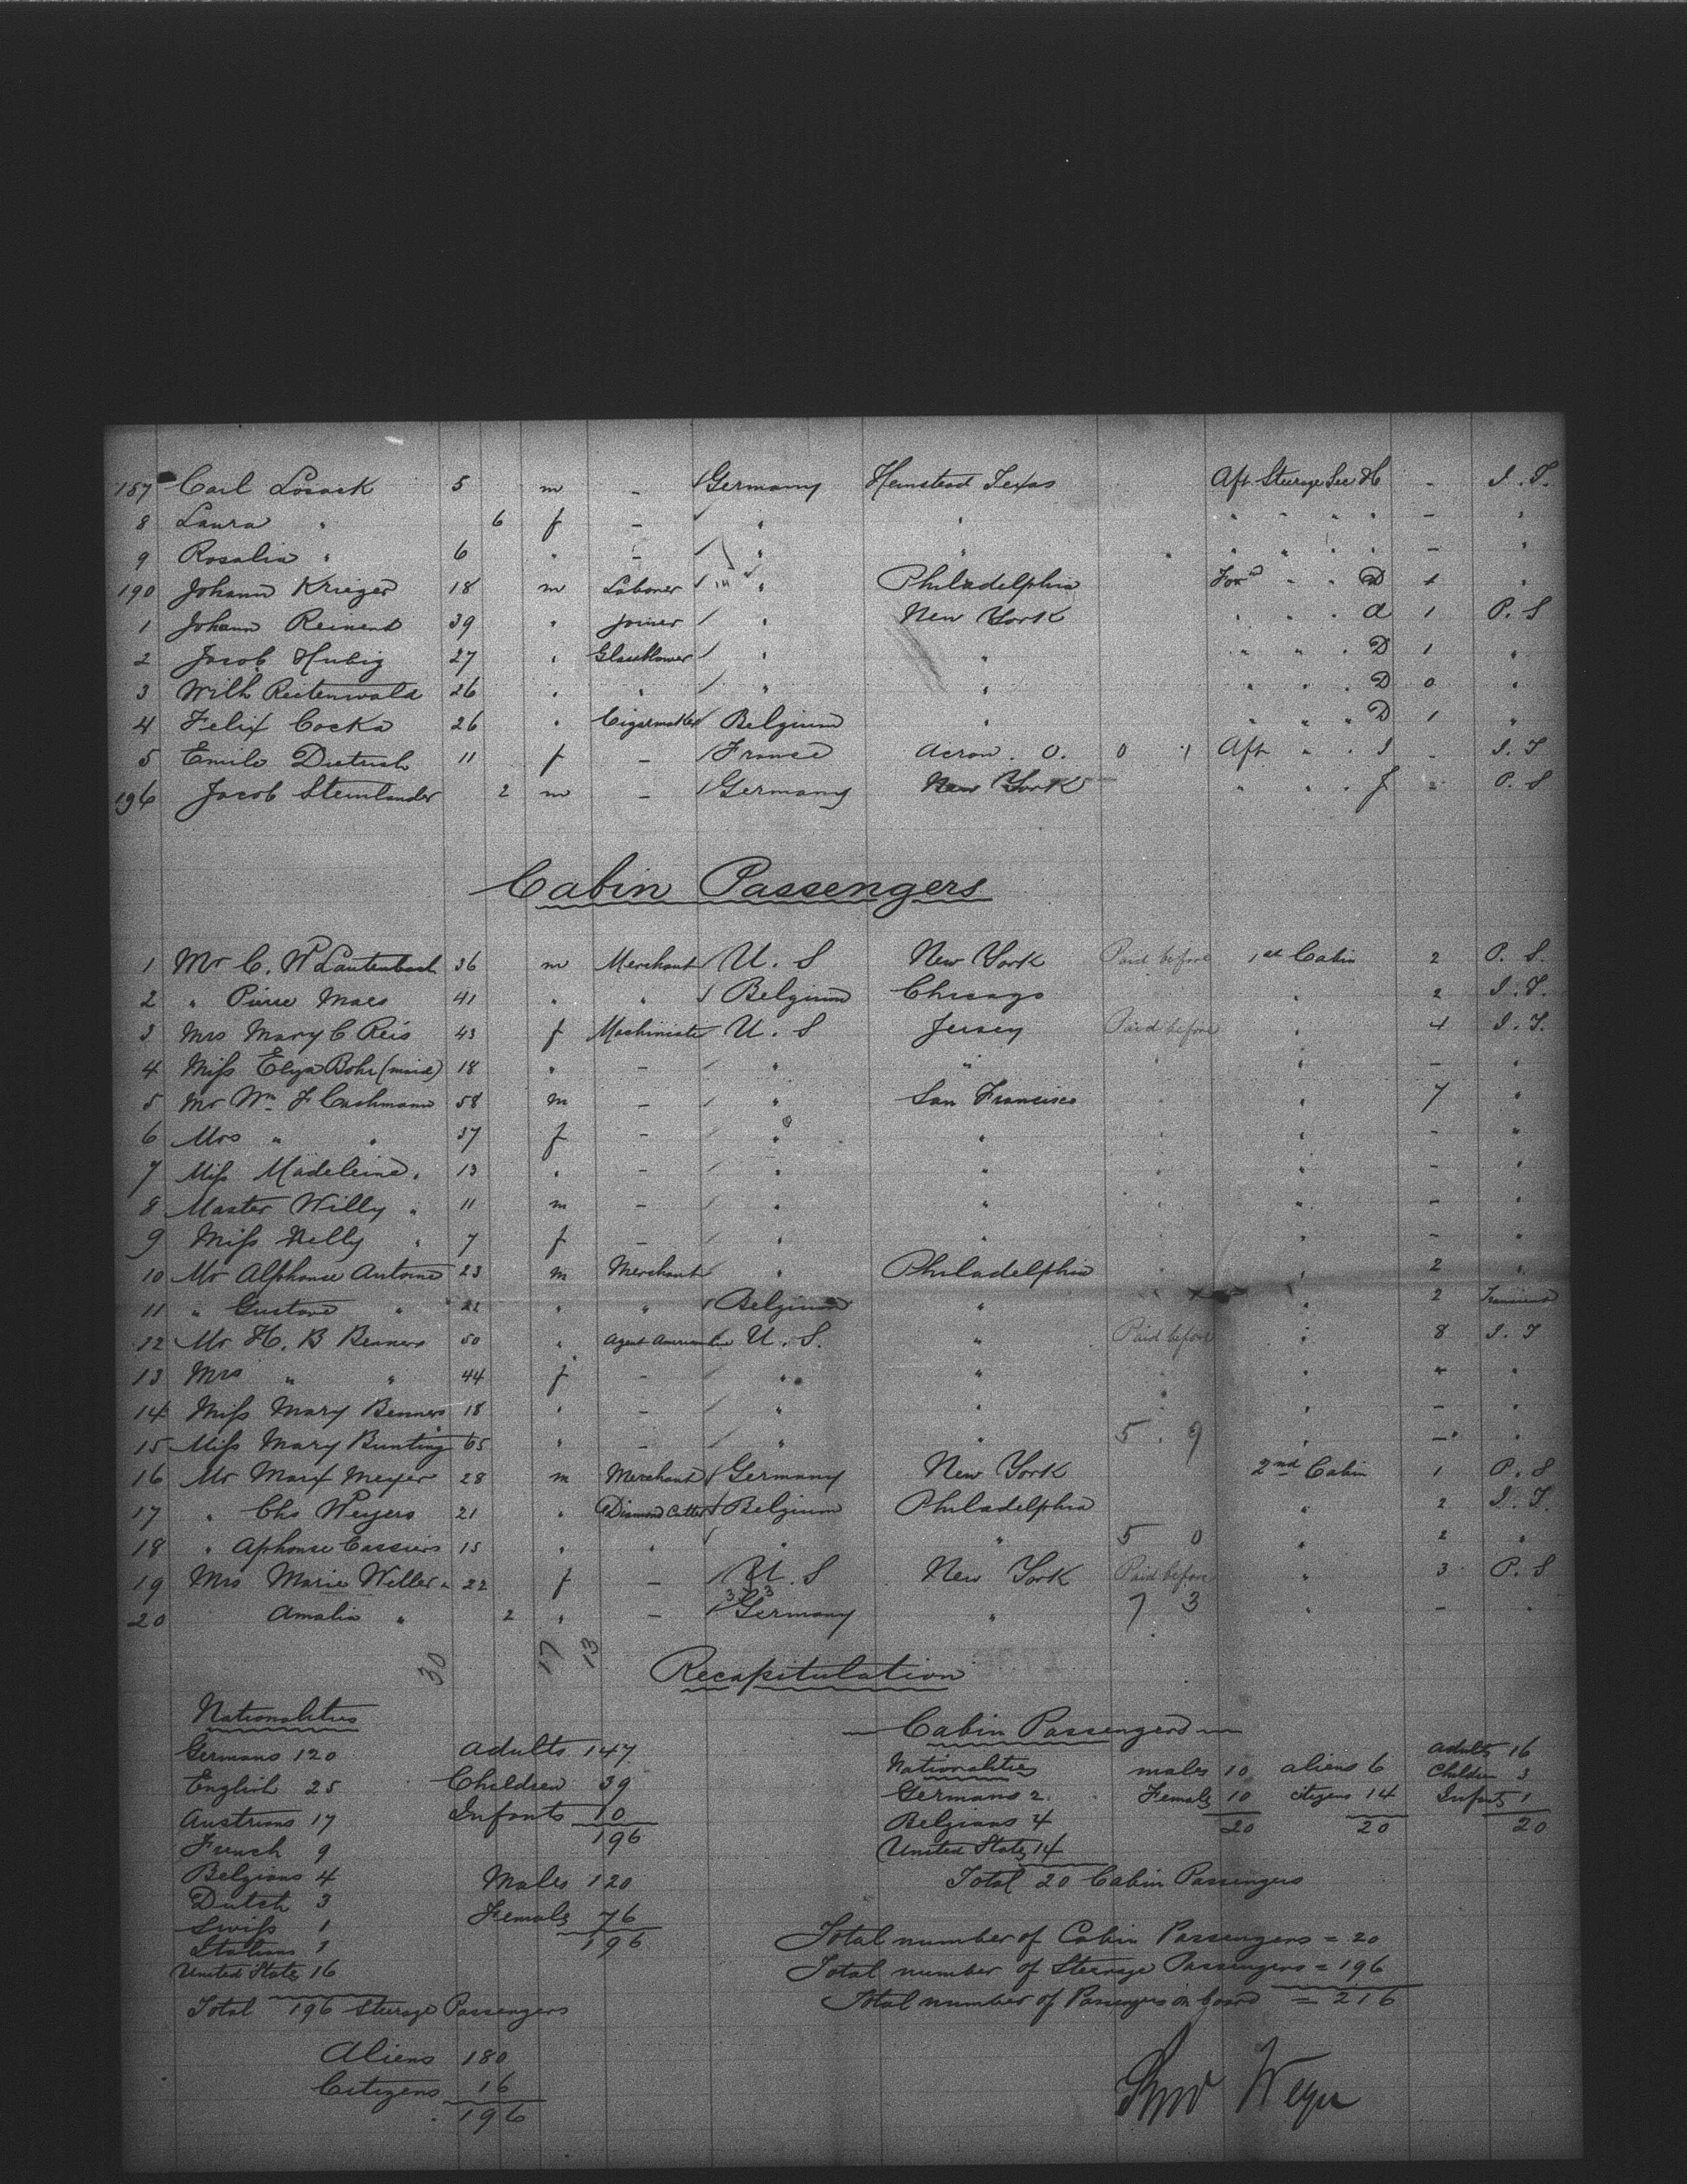 187 Carl Losack 5 m - Germany Hemstead Texas Aft Steerage Sec H - I. T.
8 Laura " 6 f - " " " " " " - "
9 Rosalia " 6 " - " " " " " " - "
190 Johann Krieger 18 m Laborer " Philadelphia Forwd " " D "
1 Johann Reinert 39 " Joiner " New York " " " a 1 P. S
2 Jacob Hubig 27 " Glassblower " " " " " D 1 "
3 Wilh Reitenwald 26 " " " " " " " D 0 "
4 Felix Cocka 26 " Cigarmaker Belgium " " " " D 1 "
5 Emile Dietrich 11 f - France Acron. O. 0 1 Aft " " J - I. T
196 Jacob Steinlander 2 m - Germany New York " " " J - P. S
Cabin Passengers
1 Mr C. W Lautenbach 36 m Merchant U. S New York Paid before 1st Cabin 2 P. S.
2 " Pierre Maes 41 " " Belgium Chicago " 2 I. T.
3 Mrs Mary C Reis 43 f Machiniste U. S Jersey Paid before " 4 I. T.
4 Miss Eliza Bohr (maid) 18 " - " " " " - "
5 Mr Wm F Cashmann 58 m - " San Francisco " " 7 "
6 Mrs " " 37 f - " " " " - "
7 Miss Madeleine " 13 " - " " " " - "
8 Master Willy " 11 m - " " " " - "
9 Miss Nelly " 7 f - " " " " - "
10 Mr Alphonse Antoine 23 m Merchant " Philadelphia " " 2 "
11 " Gustave " 22 " " Belgium " " 2 Transient
12 Mr H. B Benners 50 " Agent American Line U. S. " Paid before " 8 I. T
13 Mrs " " 44 f - " " " " " "
14 Miss Mary Benners 18 " - " " " - "
15 Miss Mary Bunting 65 " - " " 5 . 9 " - "
16 Mr Max Meyer 28 m Merchant Germany New York 2nd Cabin 1 P. S
17 " Chs Weyers 21 " Diamond Cutter Belgium Philadelphia " 2 I. T.
18 " Aphonse Cassiers 15 " " " " 5 0 " 2 "
19 Mrs Marie Weller " 22 f - U. S New York Paid before " 3 P. S
20 Amalia " 2 " - Germany " 7 3 " - "
30 17 13
Recapitulation
Nationalities
Germans 120
English 25
Austrians 17
French 9
Belgians 4
Dutch 3
Swiss 1
Italians 1
United States 16
Total 196 Steerage Passengers
Adults 147
Children 39
Infants 10
196
Males 120
Females 76
196
Aliens 180
Citizens 16
196
Cabin Passengers
Nationalities
Germans 2
Belgians 4
United States 14
Total 20 Cabin Passengers
males 10 aliens 6 Adults 16
Females 10 citizens 14 Children 3
Infants 1
20 20 20
Total number of Cabin Passengers = 20
Total number of Steerage Passengers = 196
Total number of Passengers on board = 216
Weyer